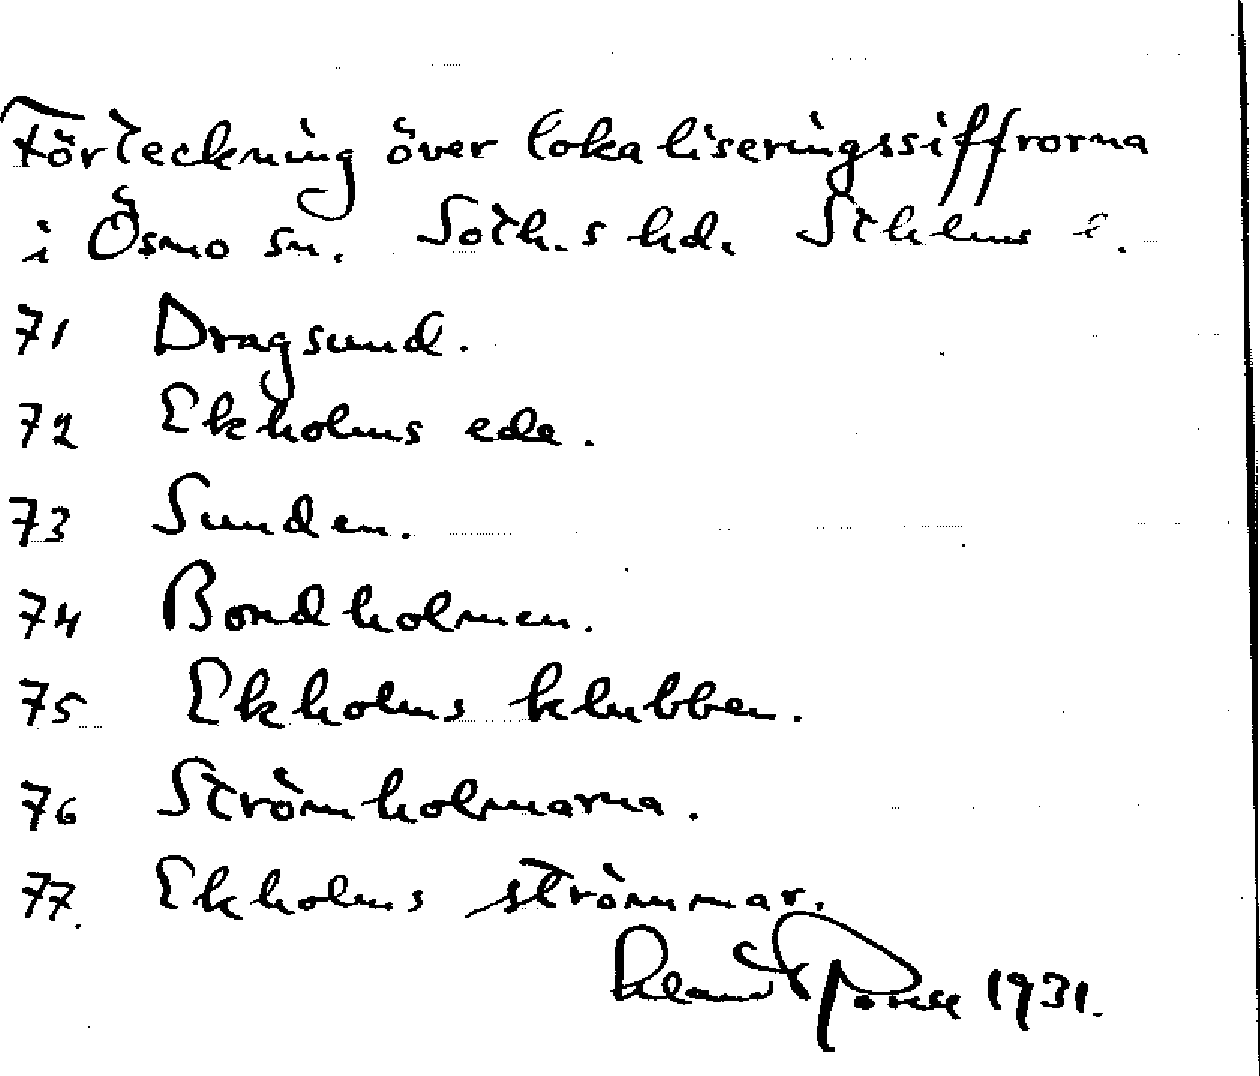 Förteckning över lokaliseringssiffrorna
i Ösmo sn. Soth.s hd. Sthlms l.
71 Dragsund.
72 Ekholms ede.
73 Sunden.
74 Bondholmen.
75 Ekholms klubben.
76 Strömholmarna.
77. Ekholms strömmar.
1931.